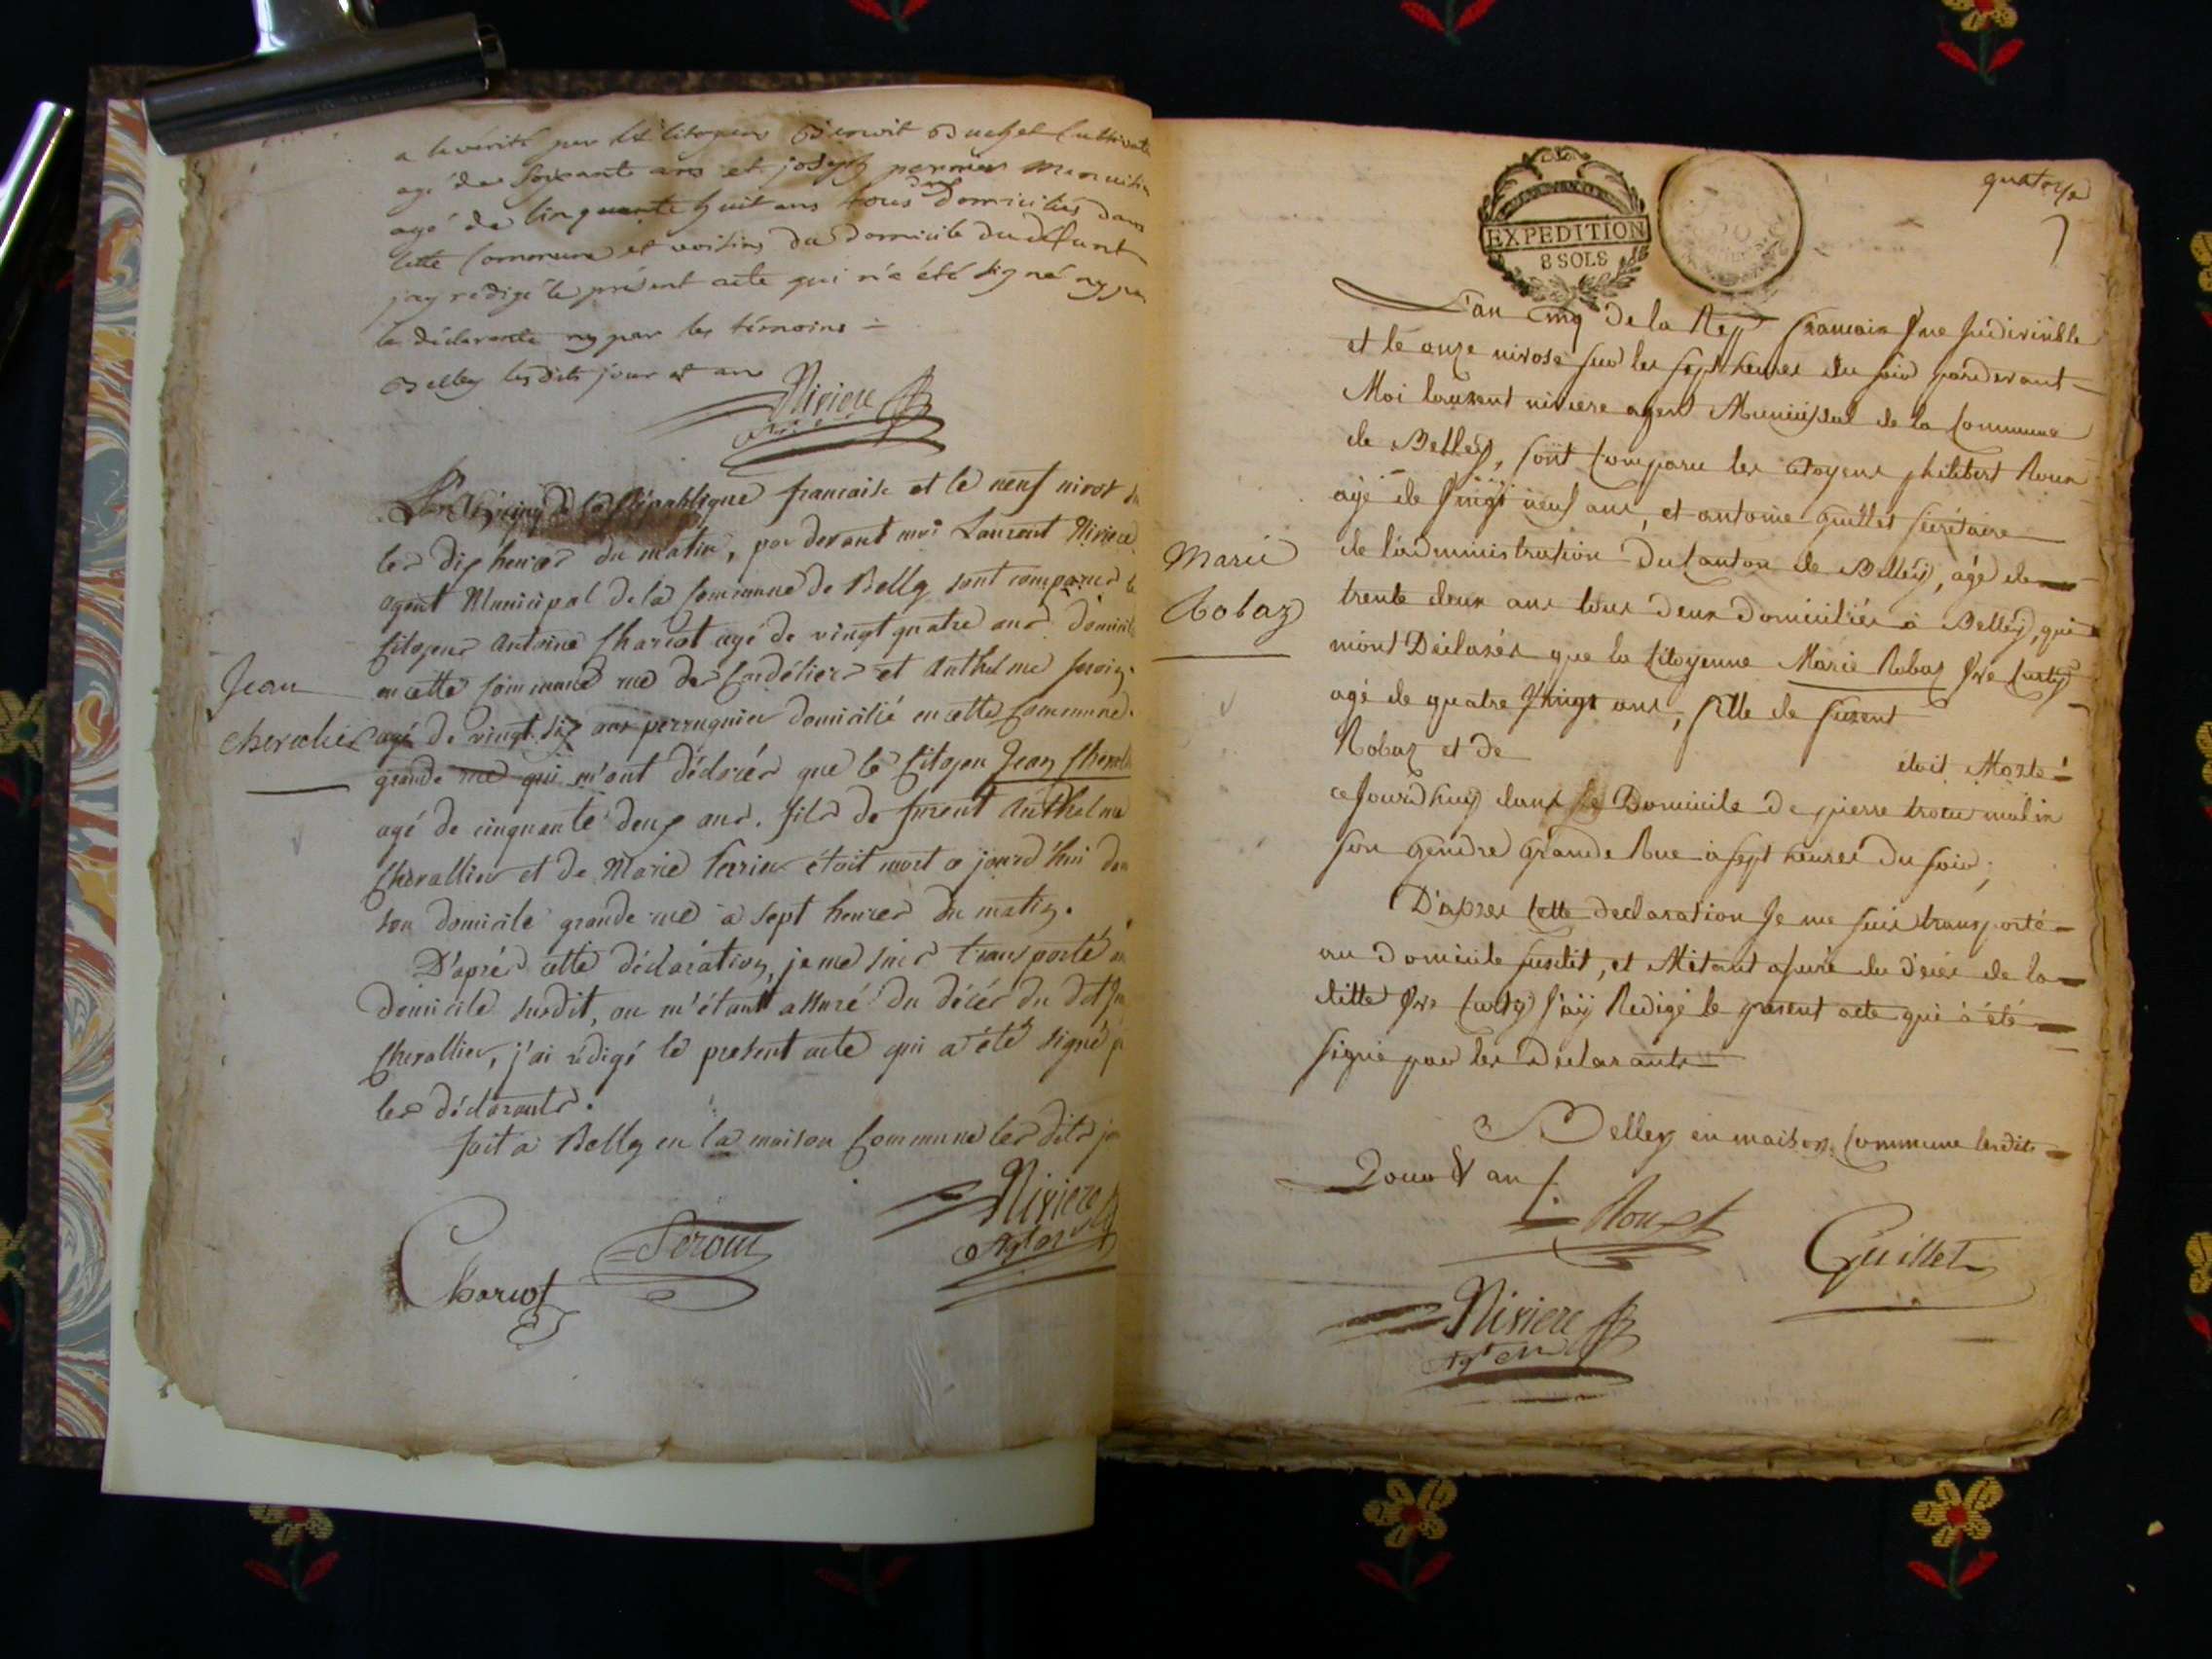 a la vérité par les Citoyens Benoit Buchet Cultivate
agé de soixante ans et joseph perrier Menuisie
agé de Cinquante huit ans tous deux domiciliés dans
cette Commune et voisins du domicile du défunt
jay redigé le présent acte qui n'a été signé ny par
la déclarante ny par les témoins =
Belley lesdits jour et an
Niviere
L'an cinq de la République francaise et le neuf nivose
les dix heures du matin, par devant moi Laurent Niviere
agent Municipal de la Commune de Belley sont comparus le
Citoyens Antoine Chariot agé de vingt quatre ans domicili
en cette Commune rue des Cordéliers et Anthelme
Jean
agé de vingt six ans perruquier domicilié en cette Commune
chevalier
grande rue qui m'ont déclarés que le Citoyen Jean Cheval
agé de cinquante deux ans. fils de furent Anthelme
Chevallier et de Marie Perrin étoit mort ce jourd'hui dan
son domicile grande rue à sept heures du matin.
D'après cette déclaration, je me suis transporté au
domicile susdit, ou m'étant assuré du décès du dit
Chevallier, j'ai rédigé le present acte qui a été signé p
les déclarants.
fait a Belley en la maison Commune les dits jo
Niviere
Agt
Chariot
quatorze
EXPEDITION
8 SOLS
L'an Cinq de la Rep francaise Une Indivisible
et le onze nivose sur les sept heures du soir pardevant
Moi laurent niviere agent Municipal de la Commune
de Belley, sont Comparu les citoyens philibert Roux
agé de vingt neuf ans, et antoine guillet secrétaire
Marie
Robaz
de l'administration du Canton de Belley, agé de
trente deux ans tous deux domiciliés à Belley, qui
mont Déclarés que la Citoyenne Marie Robaz Vve Curty
agé de quatre Vingt ans, fille de furent
Robaz et de étoit Morte
cejourdhuy dans le Domicile de pierre trocu molin
son gendre grande Rue à sept heures du soir;
D'après cette declaration Je me suis transporté
au Domicile susdit, et M'étant assuré du décès de la
ditte Vve Curty J'aÿ Redigé le present acte qui à été
signé par les Déclarants
Belley en maison Commune lesdits
Jour & an
Roux
Guillet
Niviere
Agt